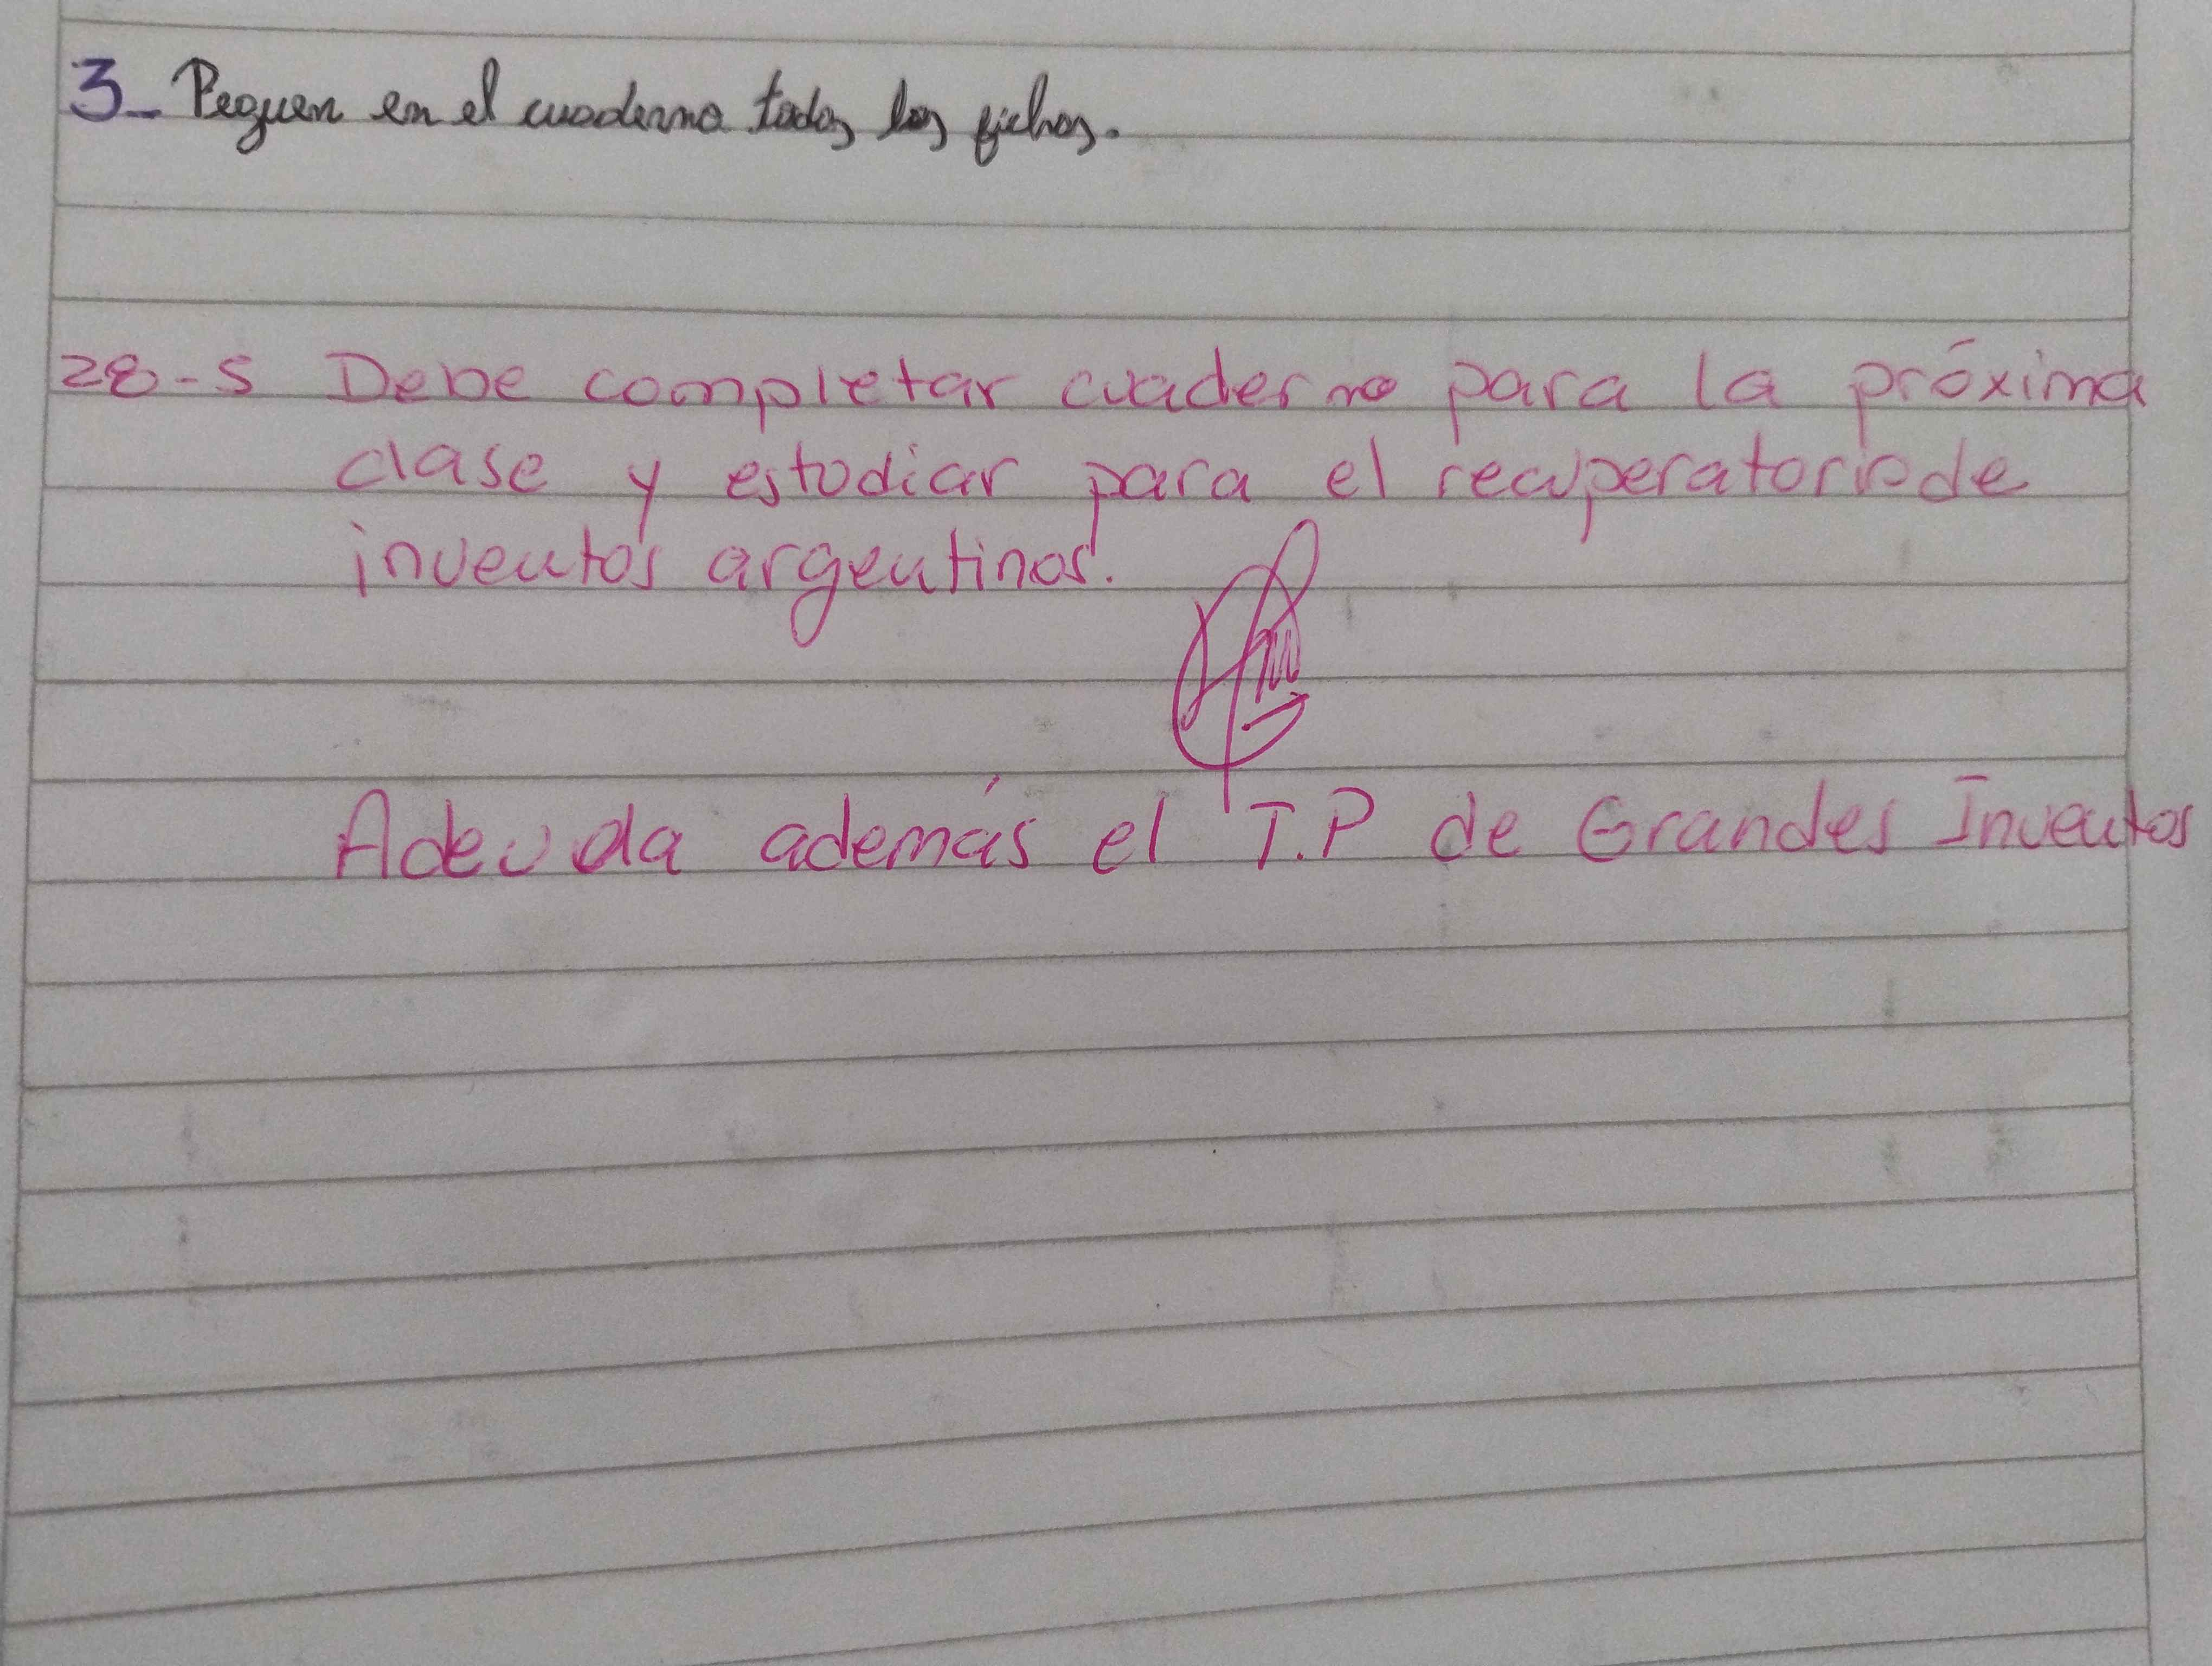 3- Peguen en el cuaderno todas las fichas.
28-5 Debe completar cuaderno para la próxima
clase y estudiar para el recuperatorio de
inventos argentinos.
Adeuda además el T.P de Grandes Inventos